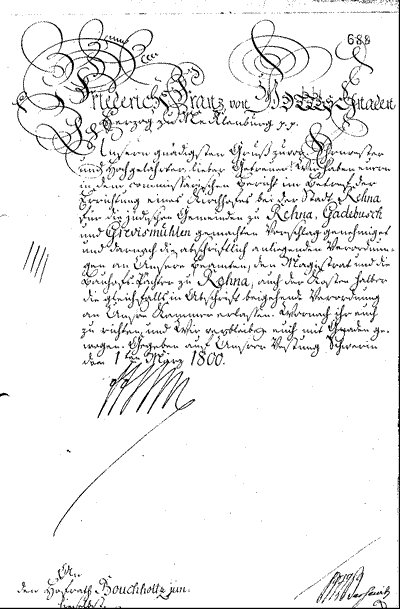 688
Friederich Franz von Gottes Gnaden
Herzog zu Mecklenburg p.p.
Unsern gnädigsten Gruß zuvor. Ehrenvester
und Hochgelahrter, lieber Getreuer! Wir haben euren
in dem commissarischen Bericht in Betref der
Errichtung eines Kirchhofes bei der Stadt Rehna
für die jüdischen Gemeinden zu Rehna, Gadebusch
und Grevismühlen gemachten Vorschlag genehmiget
und darnach die abschriftlich anliegenden Verordnun-
gen an Unsere Beamten, den Magistrat und die
zu Rehna, auch der Kosten halber
die gleichfalls in Abschrift beigehende Verordnung
an Unsere Kammer erlassen. Wornach ihr euch
zu richten, und Wir verbleiben euch mit Gnaden ge-
wogen. Gegeben auf Unserer Vestung Schwerin
den 1ten März 1800.
An
den Hofrath Bouchholtz jun.
hieselbst